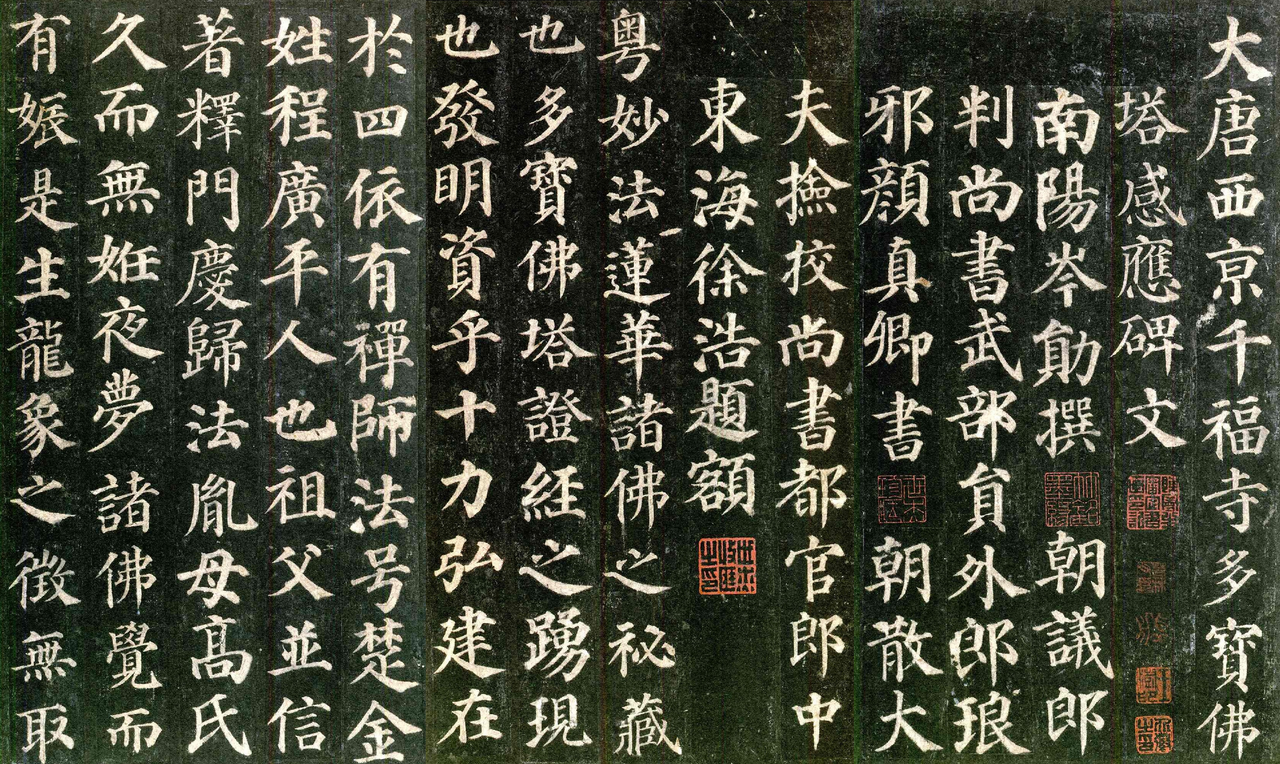 大唐西京千福寺多寶佛
塔感應碑文
南陽岑勛撰朝議郎
判尚書武部貟外郎琅
邪顏真卿書朝散大
夫撿挍尚書都官郎中
東海徐浩題額
粵妙法蓮華諸佛之祕藏
也多寶佛塔證經之踴現
也發明資乎十力弘建在
於四依有禪師法号楚金
姓程廣平人也祖父並信
著釋門慶歸法胤母高氏
久而無姙夜夢諸佛覺而
有娠是生龍象之徵無取